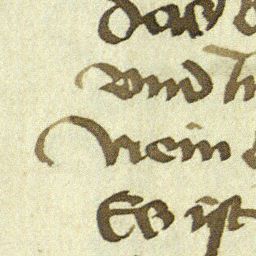 das
vnd
Nein
Es ist